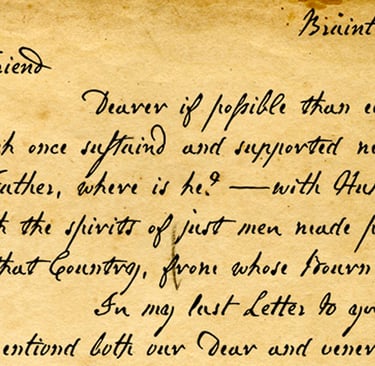 Braint
riend
Dearer if poſsible than e
h once suſtaind and supported ne
ather, where is he? — with Hu
h the spirits of just men made p
that Country, from whose Bourn
In my last Letter to yo
entiond both our Dear and vener